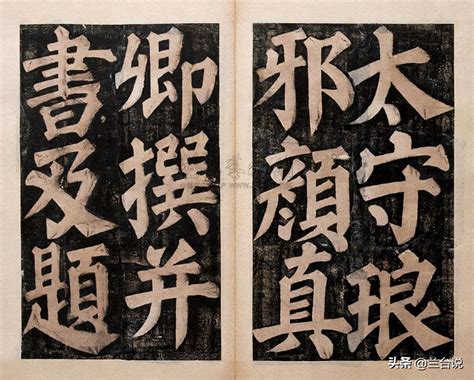 太守琅
邪顏真
卿撰并
書及題
头条@兰台说